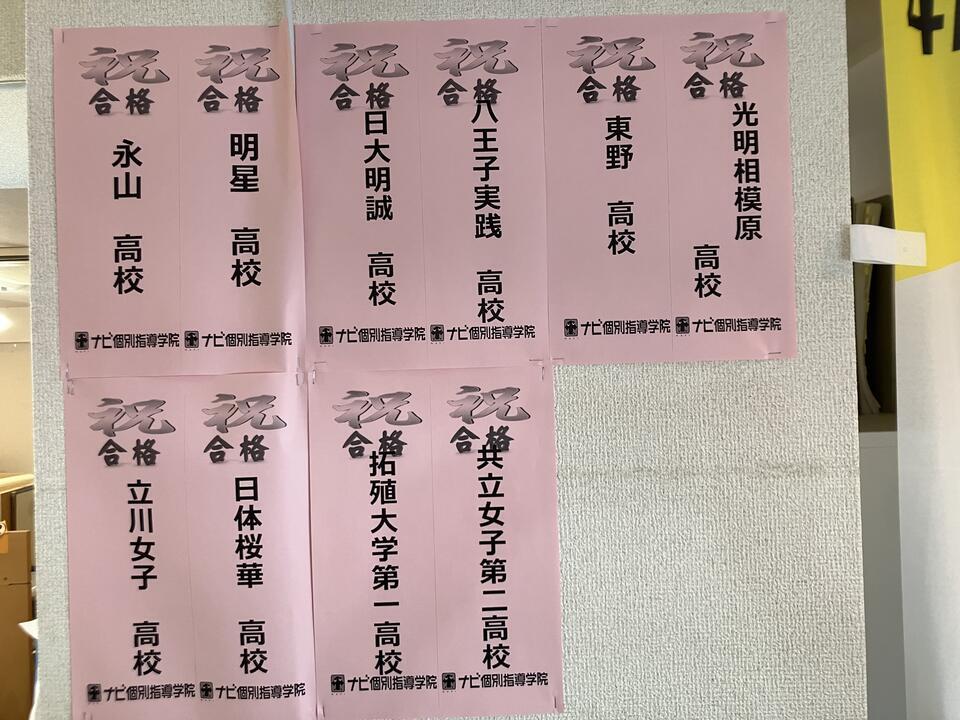 祝
合格
永山 高校
ナビ個別指導学院
祝
合格
明星 高校
ナビ個別指導学院
祝
合格
日大明誠 高校
ナビ個別指導学院
祝
合格
八王子実践 高校
ナビ個別指導学院
祝
合格
東野 高校
ナビ個別指導学院
祝
合格
光明相模原
高校
ナビ個別指導学院
祝
合格
立川女子 高校
ナビ個別指導学院
祝
合格
日体桜華 高校
ナビ個別指導学院
祝
合格
拓殖大学第一高校
ナビ個別指導学院
祝
合格
共立女子第二高校
ナビ個別指導学院